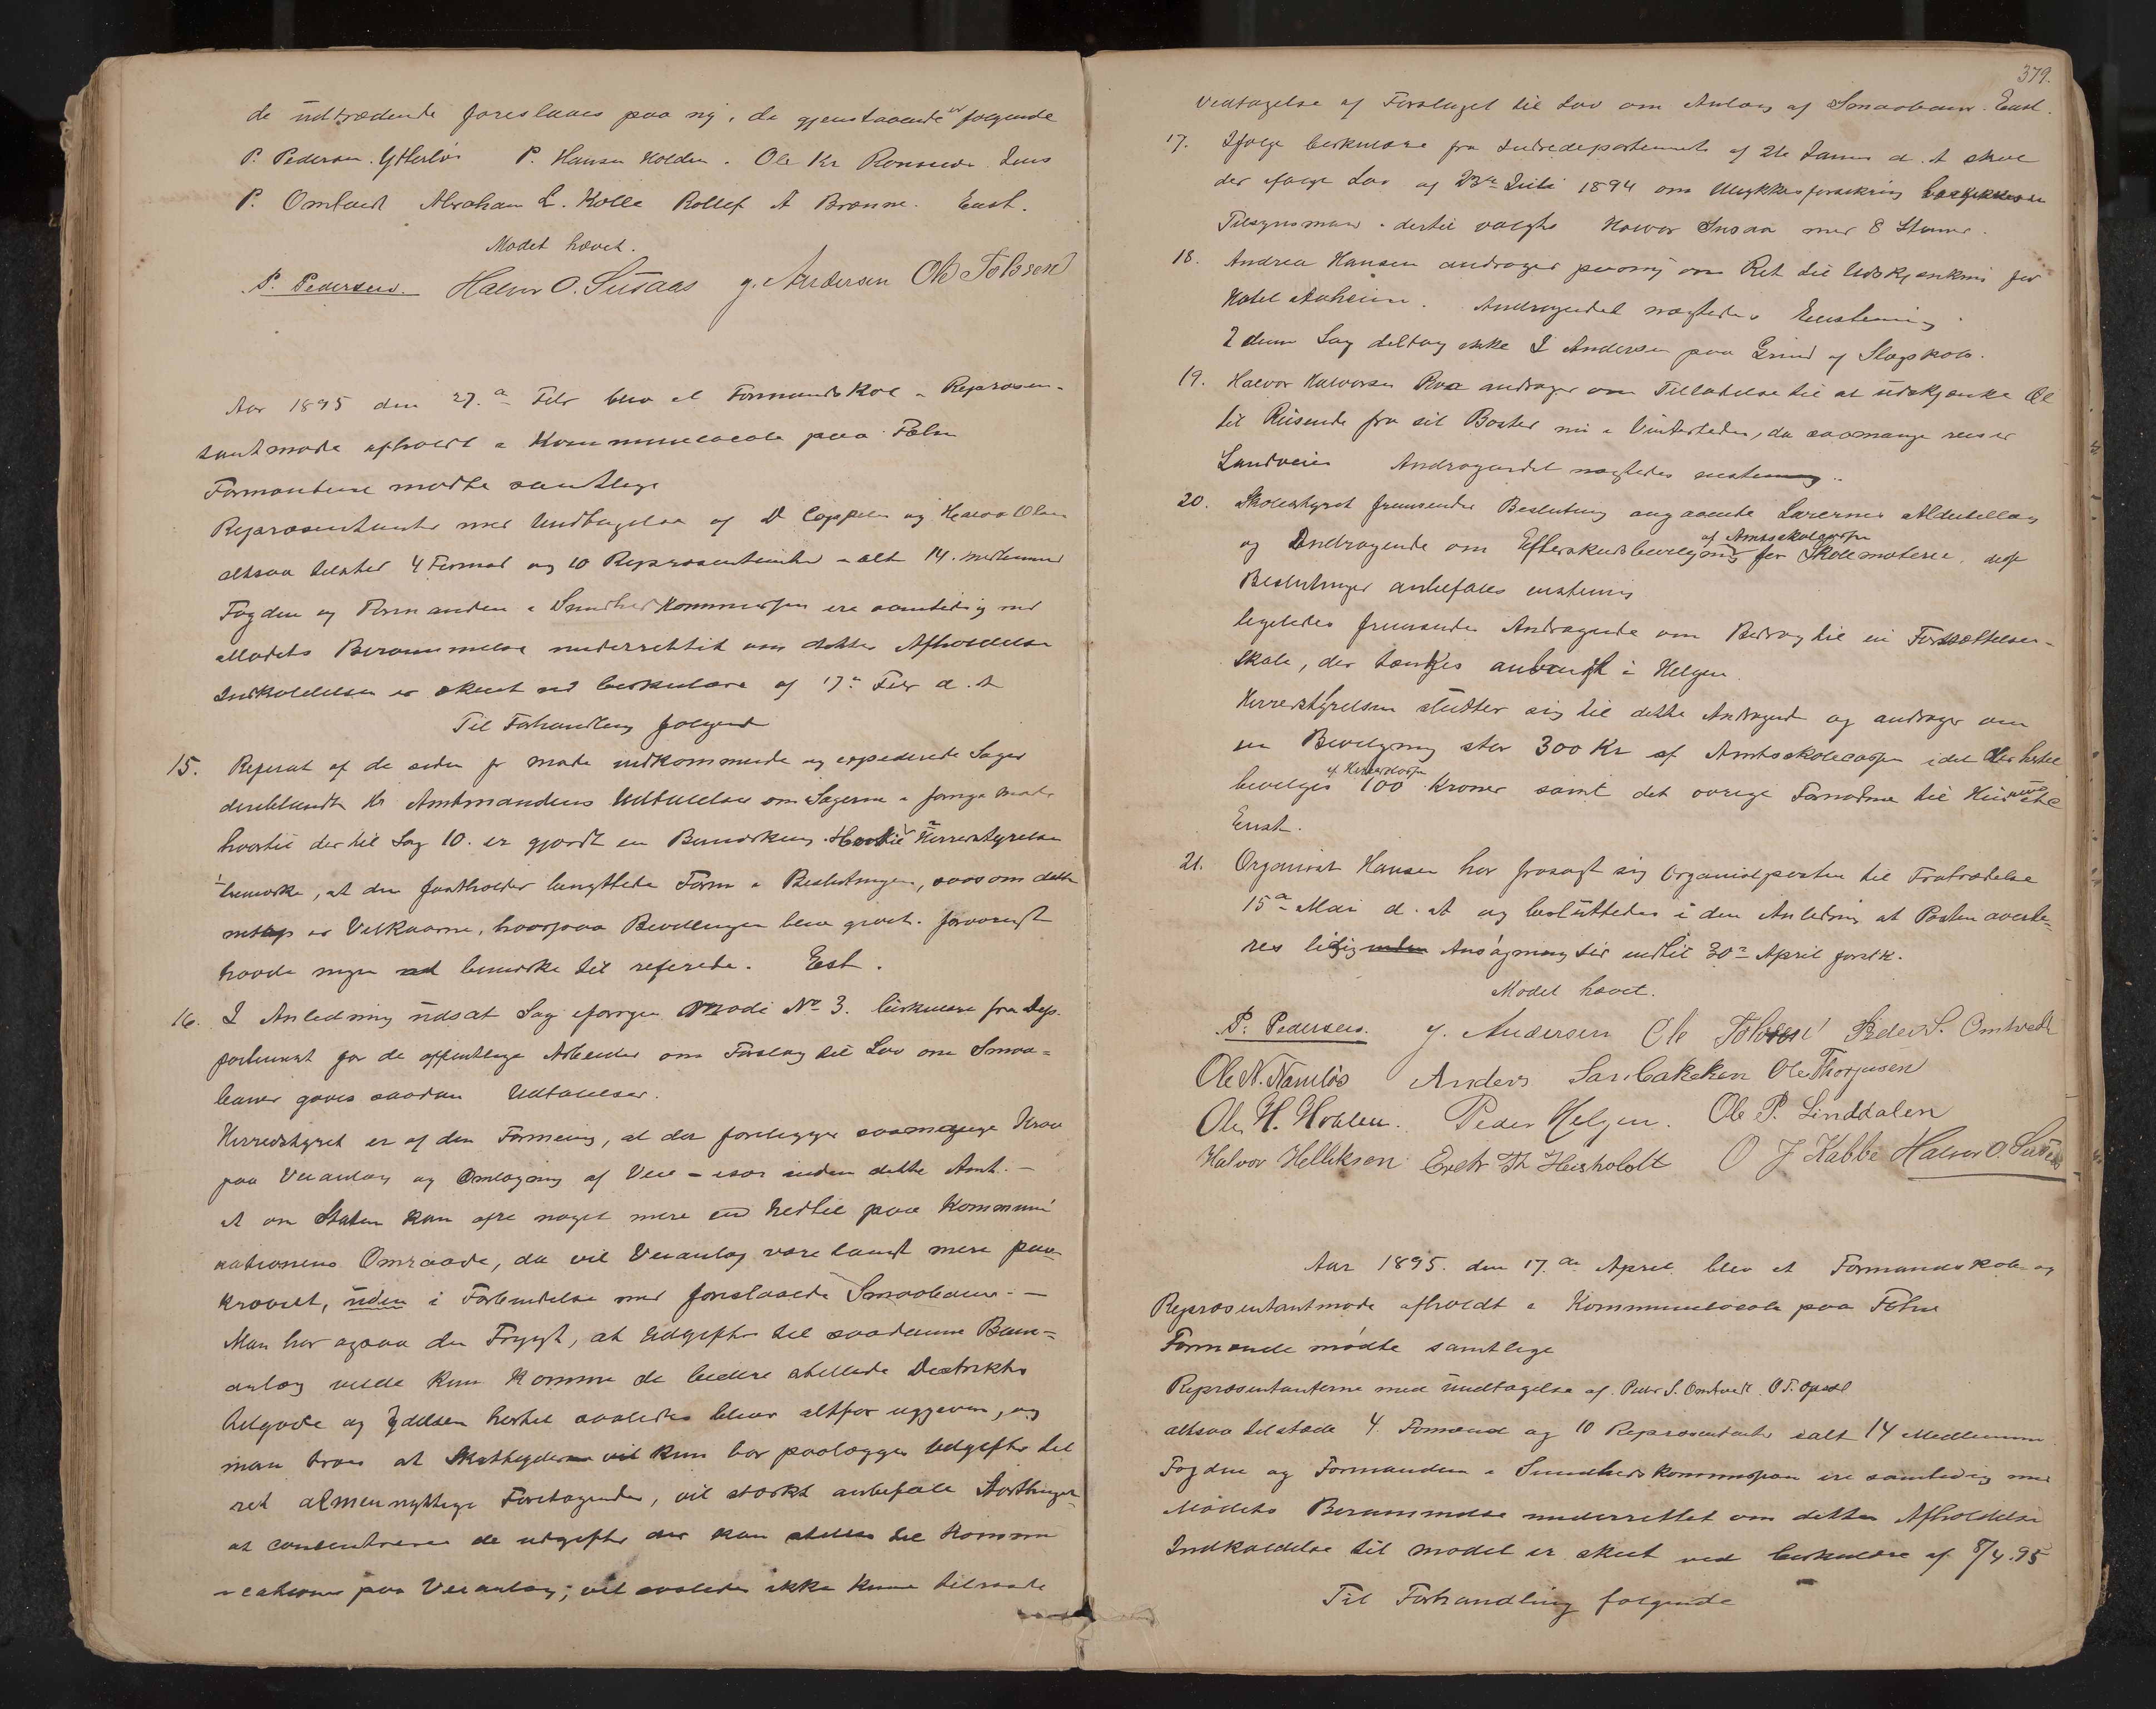 de udtrædende foreslaaes paa ny, de gjenstaaende er følgende
P. Pedersen Ytterbø P. Hansen Holden. Ole Kr Rønnun Jens
P. Omtvedt Abraham L. Kolle Rollef A Brenne. Enst.
Mødet hævet.
P. Pedersen. Halvor O. Susaas J. Andersen Ole Tolvsen
Aar 1895 den 27.de Febr blev et Formandskab & Repræsen-
tantmøde afholdt i Kommunelocale paa Folm
Formændene mødte samtlige
Repræsentanter med Undtagelse af D Cappelen og Halvor Olsen
altsaa tilsted 4 Formænd og 10 Repræsentanter ialt 14. medlemmer
Fogden og Formanden i Sundhedskommissjon ere samtidig med
Mødets Berammelse underrettet om dettes Afholdelse
Indkaldelsen er skeet ved Cirkulære af 17de Febr d. A
Til Forhandling følgende
15. Referat af de siden fr møde indkommende og expederede Sager
deriblandt Hr Amtmandens Udtalelser om Sagerne i forrige møde
hvortil der til Sag 10. er gjordt en Bemærkning. Hertil Herredsstyrelsen
bemærke, at den fastholder benyttede Form i Beslutningen, saasom dette
netop er Vilkaarne, hvorpaa Bevillingen blev givet. forøvrigt
havde ingen bemærke til referede. Est.
16. I Anledning udsat Sag i forrige Møde No 3. Cirkulære fra Dep-
partement for de offentlige Arbeider om Forslag til Lov om Smaa=
baner gaves saadan Udtalelser.
Herredstyret er af den Formening, at der foreligger saamange Krav
paa Veianlæg og Omlægning af Veie – især inden dette Amt. –
at om Staten kan ofre noget mere end hidtil paa Kommuni
kationens Omraade, da vil Veianlæg være langt mere paa-
krævet, uden i Forbindelse med foreslaaede Smaabaner. –
Man har ogsaa den Frygt, at Udgifter til saadanne Bane=
anlæg vilde kun komme de bedre stillede Distrikter
tilgode og Ydelsen hertil saaledes bliver altfor uggjeven, og
man troer at Skatteyderne vil kun bør paalægges Udgifter til
ret almennyttige Foretagender, vil stærkt anbefale Storthinget
at concentrerer de udgifter der kan stilles til Kommu
nikationer paa Veianlæg; vil saaledes ikke kunne tilraade
379.
Vedtagelse af Forslaget til Lov om Anlæg af Smaabaner. Enst.
17. Ifølge Cirkulære fra Indredepartementet af 26 Januar d. A skal
der ifølge Lov af 23de Juli 1894 om Ulykkesforsikring
Tilsynsmænd. dertil valgte Halvor Susaa med 8 Stemmer.
18. Andrea Hansen andrager paany om Ret til Udskjænkning for
Hotel Anheim. Andragendet nægtedes Enstemmig
I denne Sag deltog ikke I Andersen paa Grund af Slægskab.
19. Halvor Halvorsen Roa andrager om Tilladelse til at udskjænke Øl
til Reisende fra sit Bosted nu i Vintertiden, da saamange reiser
Landveien Andragendet nægtedes enstemmig.
20. Skolestyret fremsender Beslutning angaaende Lærernes Alderstillæg
og Andragende om Efterskudsbevilgning af Amtsskolecassen for Skolematerie. disse
Beslutninger anbefales enstemmig
ligeledes fremsendes Andragende om Bidrag til en Fortsættelses-
skole, der tænkes anbragt i Helgen.
Herredstyrelsen slutter sig til dette Andragende og andrager om
en Bevilgning stor 300 Kr af Amtsskolecassen idet der hertil
bevilges af Herredscassen 100 Kroner samt det øvrige Fornødne til Huus
Enst.
21. Organist Hansen har frasagt sig Organistposten til Fratrædelse
15de Mai d. A og besluttedes i den Anledning at Posten averte-
res ledig Ansøgningstid indtil 30te April førstk.
Mødet hævet.
P. Pedersen. J. Andersen Ole Tolvsen Peder S. Omtvedt
Ole N. Namløs Anders Sanbakeken Ole Thorjusen
Ole H. Hoblen. Peder Helgen. Ole P. Linddalen
Halvor Helliksen Evetr Th Heisholdt O J Kabbe Halvor O. Susaas
Aar 1895. den 17.de April blev et Formandskab- og
Repræsentantmøde afholdt i Kommunelocale paa Folm
Formænde mødte samtlige
Repræsentanterne med undtagelse af. Peder S. Omtvedt. O T. Opsal
altsaa tilstæde 4. Formænd og 10 Repræsentanter ialt 14 Medlemmer
Fogden og Formanden i Sundhedskommissjon ere samtidig med
Mødets Berammelse underrettet om dettes Afholdelse
Indkaldelse til mødet er skeet ved Cirkulære af 8/4.95
Til Forhandling følgende